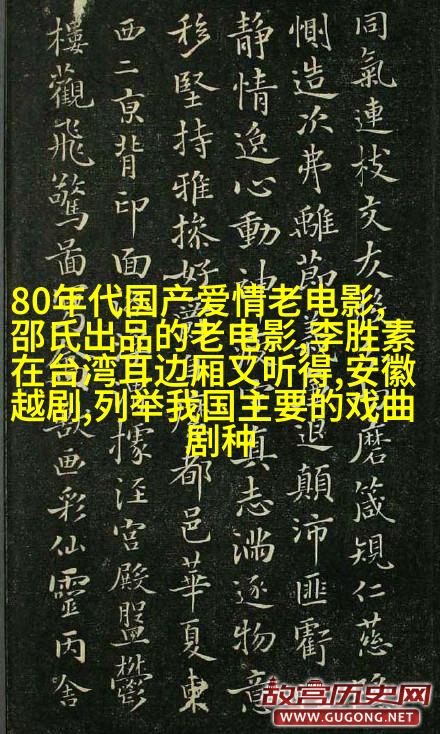 同氣連枝交友磨箴規仁慈隱
惻造次弗離節義退顛沛匪虧
靜情逸心動神真志滿逐物意
移堅持雅操好都邑華夏東
西二京背邙面據涇宮殿盤鬱
樓觀飛驚圖寫獸画彩仙靈丙舍
80年代国产爱情老电影,
邵氏出品的老电影,李胜素
在台湾耳边厢又听得,安徽
越剧,列举我国主要的戏曲
剧种
故宫历史网
WWW.GUGONG.NET